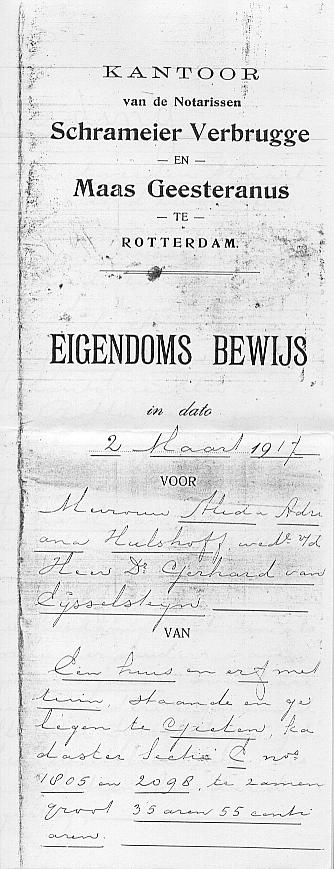 KANTOOR
van de Notarissen
Schrameier Verbrugge
— EN —
Maas Geesteranus
— TE —
ROTTERDAM.
EIGENDOMS BEWIJS
in dato
2 Maart 1917
VOOR
Mevrouw Alida Adri
ana Hulshoff, wede. v/d
Heer Dr. Gerhard van
Eijsselsteyn
VAN
Een huis en erf met
tuin, staande en ge
legen te Gieten, ka
daster Sectie C nos.
1805 en 2098, te zamen
groot 35 aren 55 centi
aren.